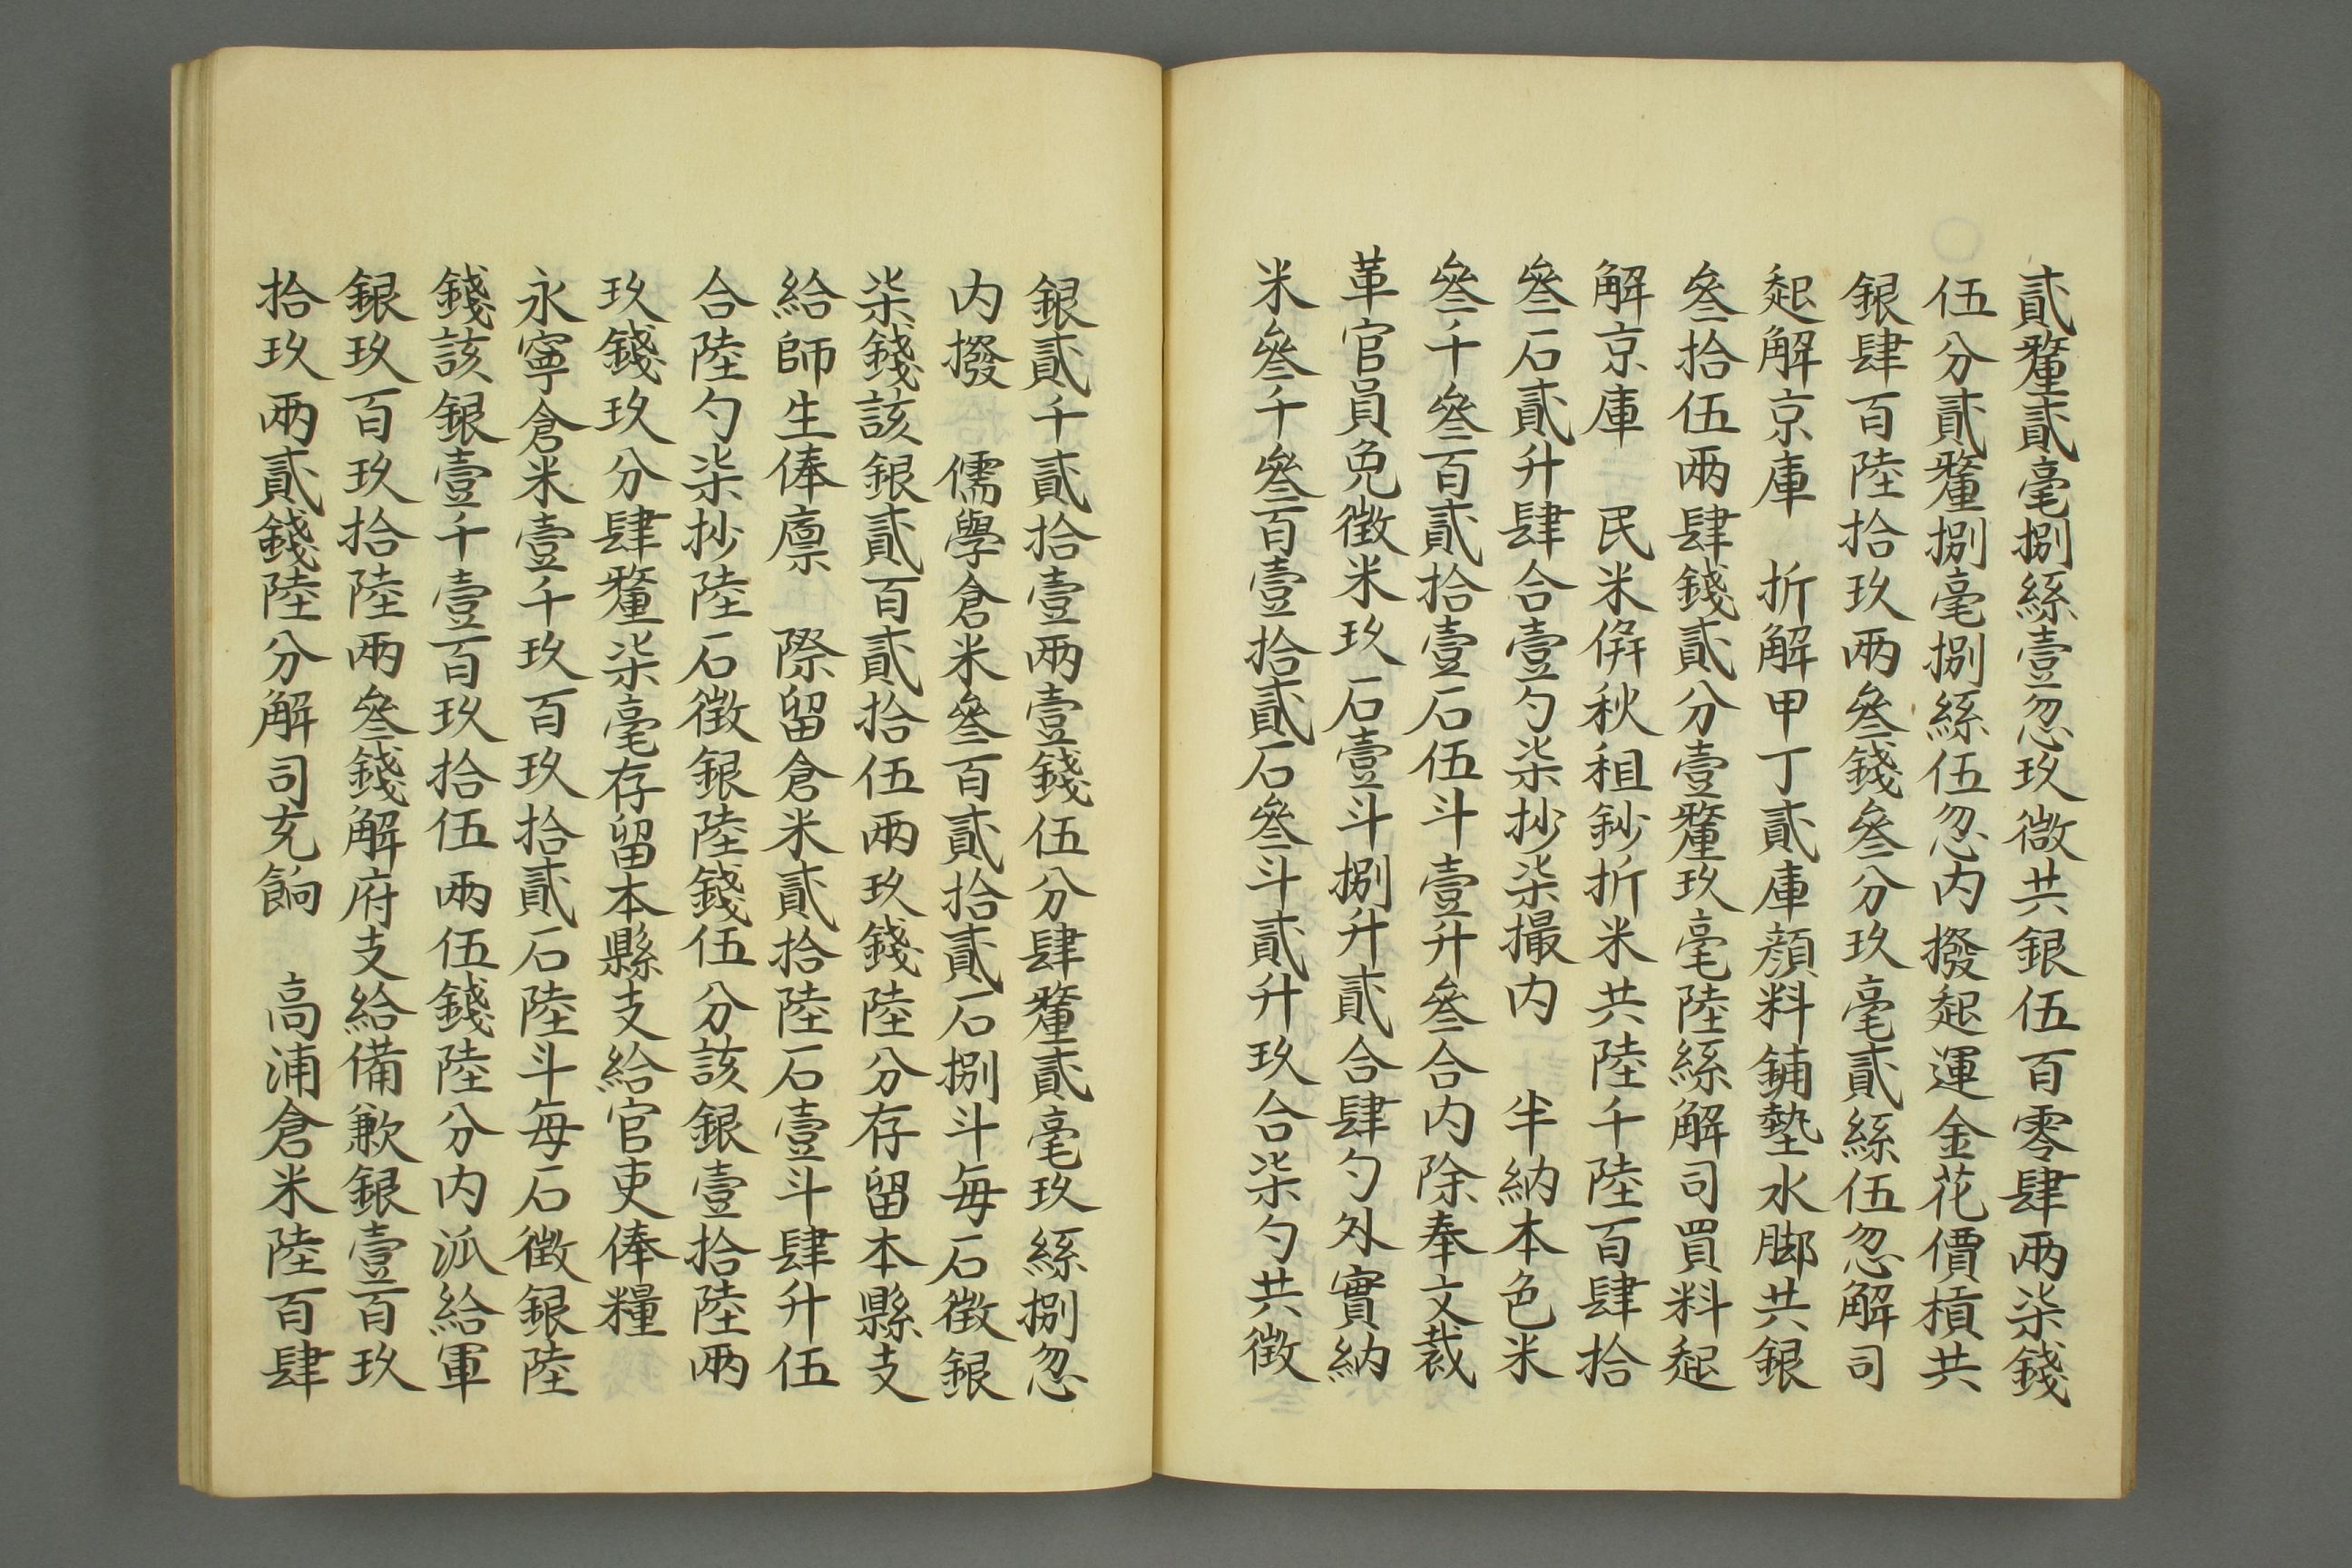 貳釐貳毫捌絲壹忽玖微共銀伍百零肆兩柒錢
伍分貳釐捌毫捌絲伍忽内撥起運金花價槓共
銀肆百陸拾玖兩叄錢叄分玖毫貳絲伍忽解司
起解京庫　折解甲丁貳庫顔料鋪墊水脚共銀
叄拾伍兩肆錢貳分壹釐玖毫陸絲解司買料起
解京庫　民米倂秋租鈔折米共陸千陸百肆拾
叄石貳升肆合壹勺柒抄柒撮内　半納本色米
叄千叄百貳拾壹石伍斗壹升叄合内除奉文裁
革官員免徵米玖石壹斗捌升貳合肆勺外實納
米叄千叄百壹拾貳石叄斗貳升玖合柒勺共徵
銀貳千貳拾壹兩壹錢伍分肆釐貳毫玖絲捌忽
内撥　儒學倉米叄百貳拾貳石捌斗每石徵銀
柒錢該銀貳百貳拾伍兩玖錢陸分存留本縣支
給師生俸廪　際留倉米貳拾陸石壹斗肆升伍
合陸勺柒抄陸石徵銀陸錢伍分該銀壹拾陸兩
玖錢玖分肆釐柒毫存留本縣支給官吏俸糧
永寧倉米壹千玖百玖拾貳石陸斗每石徵銀陸
錢該銀壹千壹百玖拾伍兩伍錢陸分内泒給軍
銀玖百玖拾陸兩叄錢解府支給備歉銀壹百玖
拾玖兩貳錢陸分解司充餉　高浦倉米陸百肆